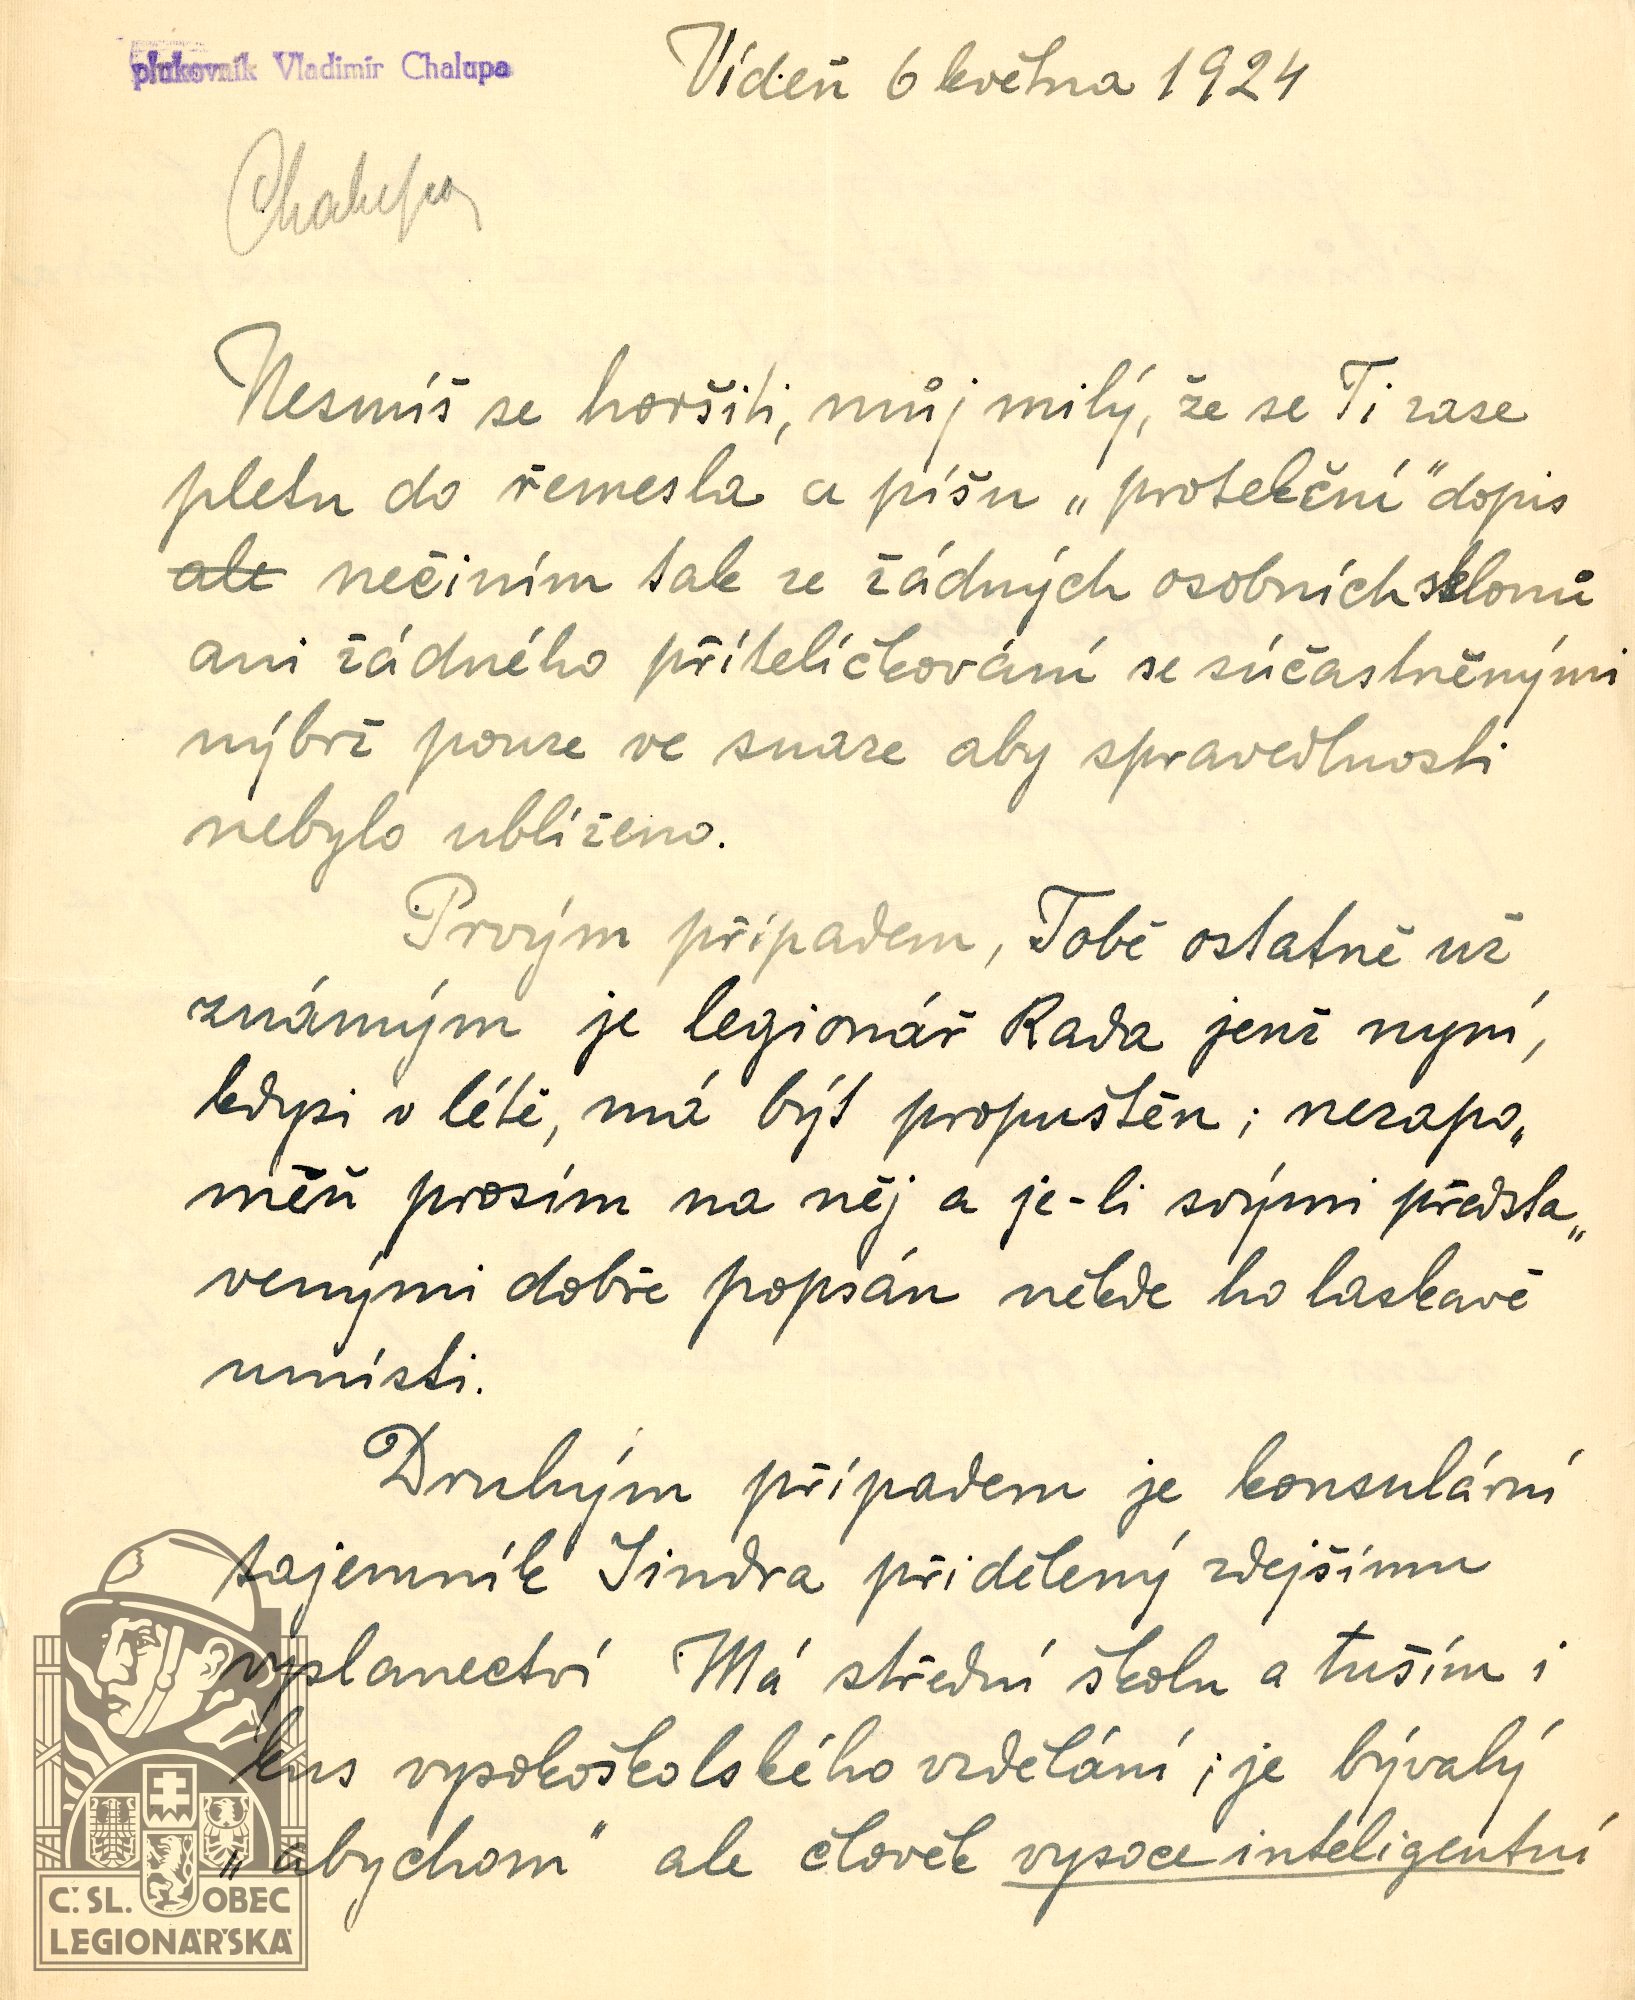 plukovník Vladimír Chalupa
Vídeň 6 května 1924
Chalupa
Nesmíš se horšiti, můj milý, že se Ti zase
pletu do řemesla a píšu „protekční" dopis
ale nečiním tak ze žádných osobních sklonů
ani žádného přítelíčkování se súčastněnými
nýbrž pouze ve snaze aby spravedlnosti
nebylo ublíženo.
Prvým případem, Tobě ostatně už
známým je legionář Rada jenž nyní,
kdysi v létě, má být propuštěn; nezapo„
měň prosím na něj a je-li svými předsta„
venými dobře popsán někde ho laskavě
umísti.
Druhým případem je konsulární
tajemník Jindra přidělený zdejšímu
vyslanectví Má střední školu a tuším i
kus vysokoškolského vzdělání; je bývalý
„abychom" ale člověk vysoce inteligentní
Č. SL. OBEC
LEGIONÁŘSKÁ